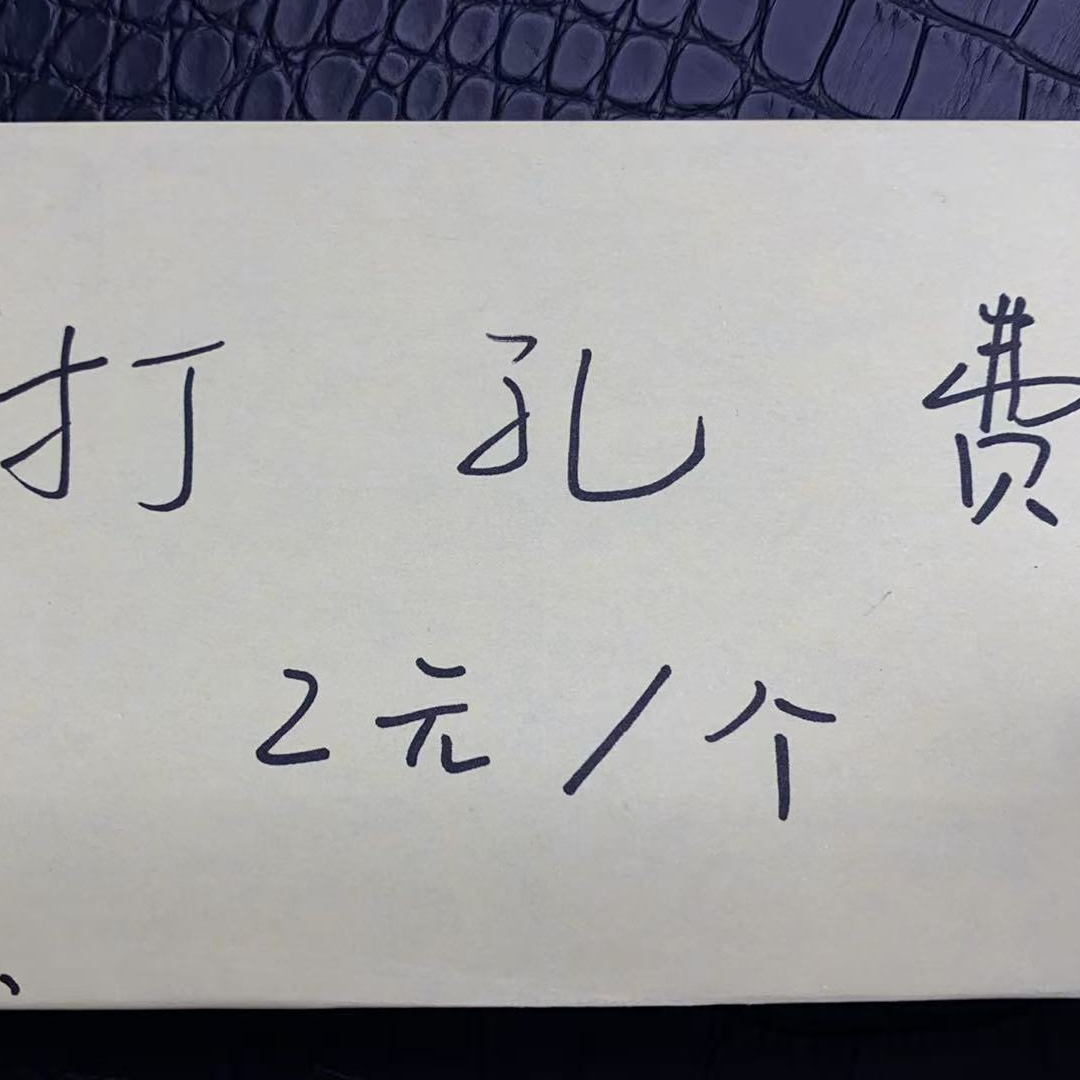 打孔费
2元/个